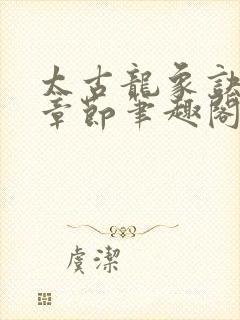 太古龍象訣
章節筆趣閣
虞潔